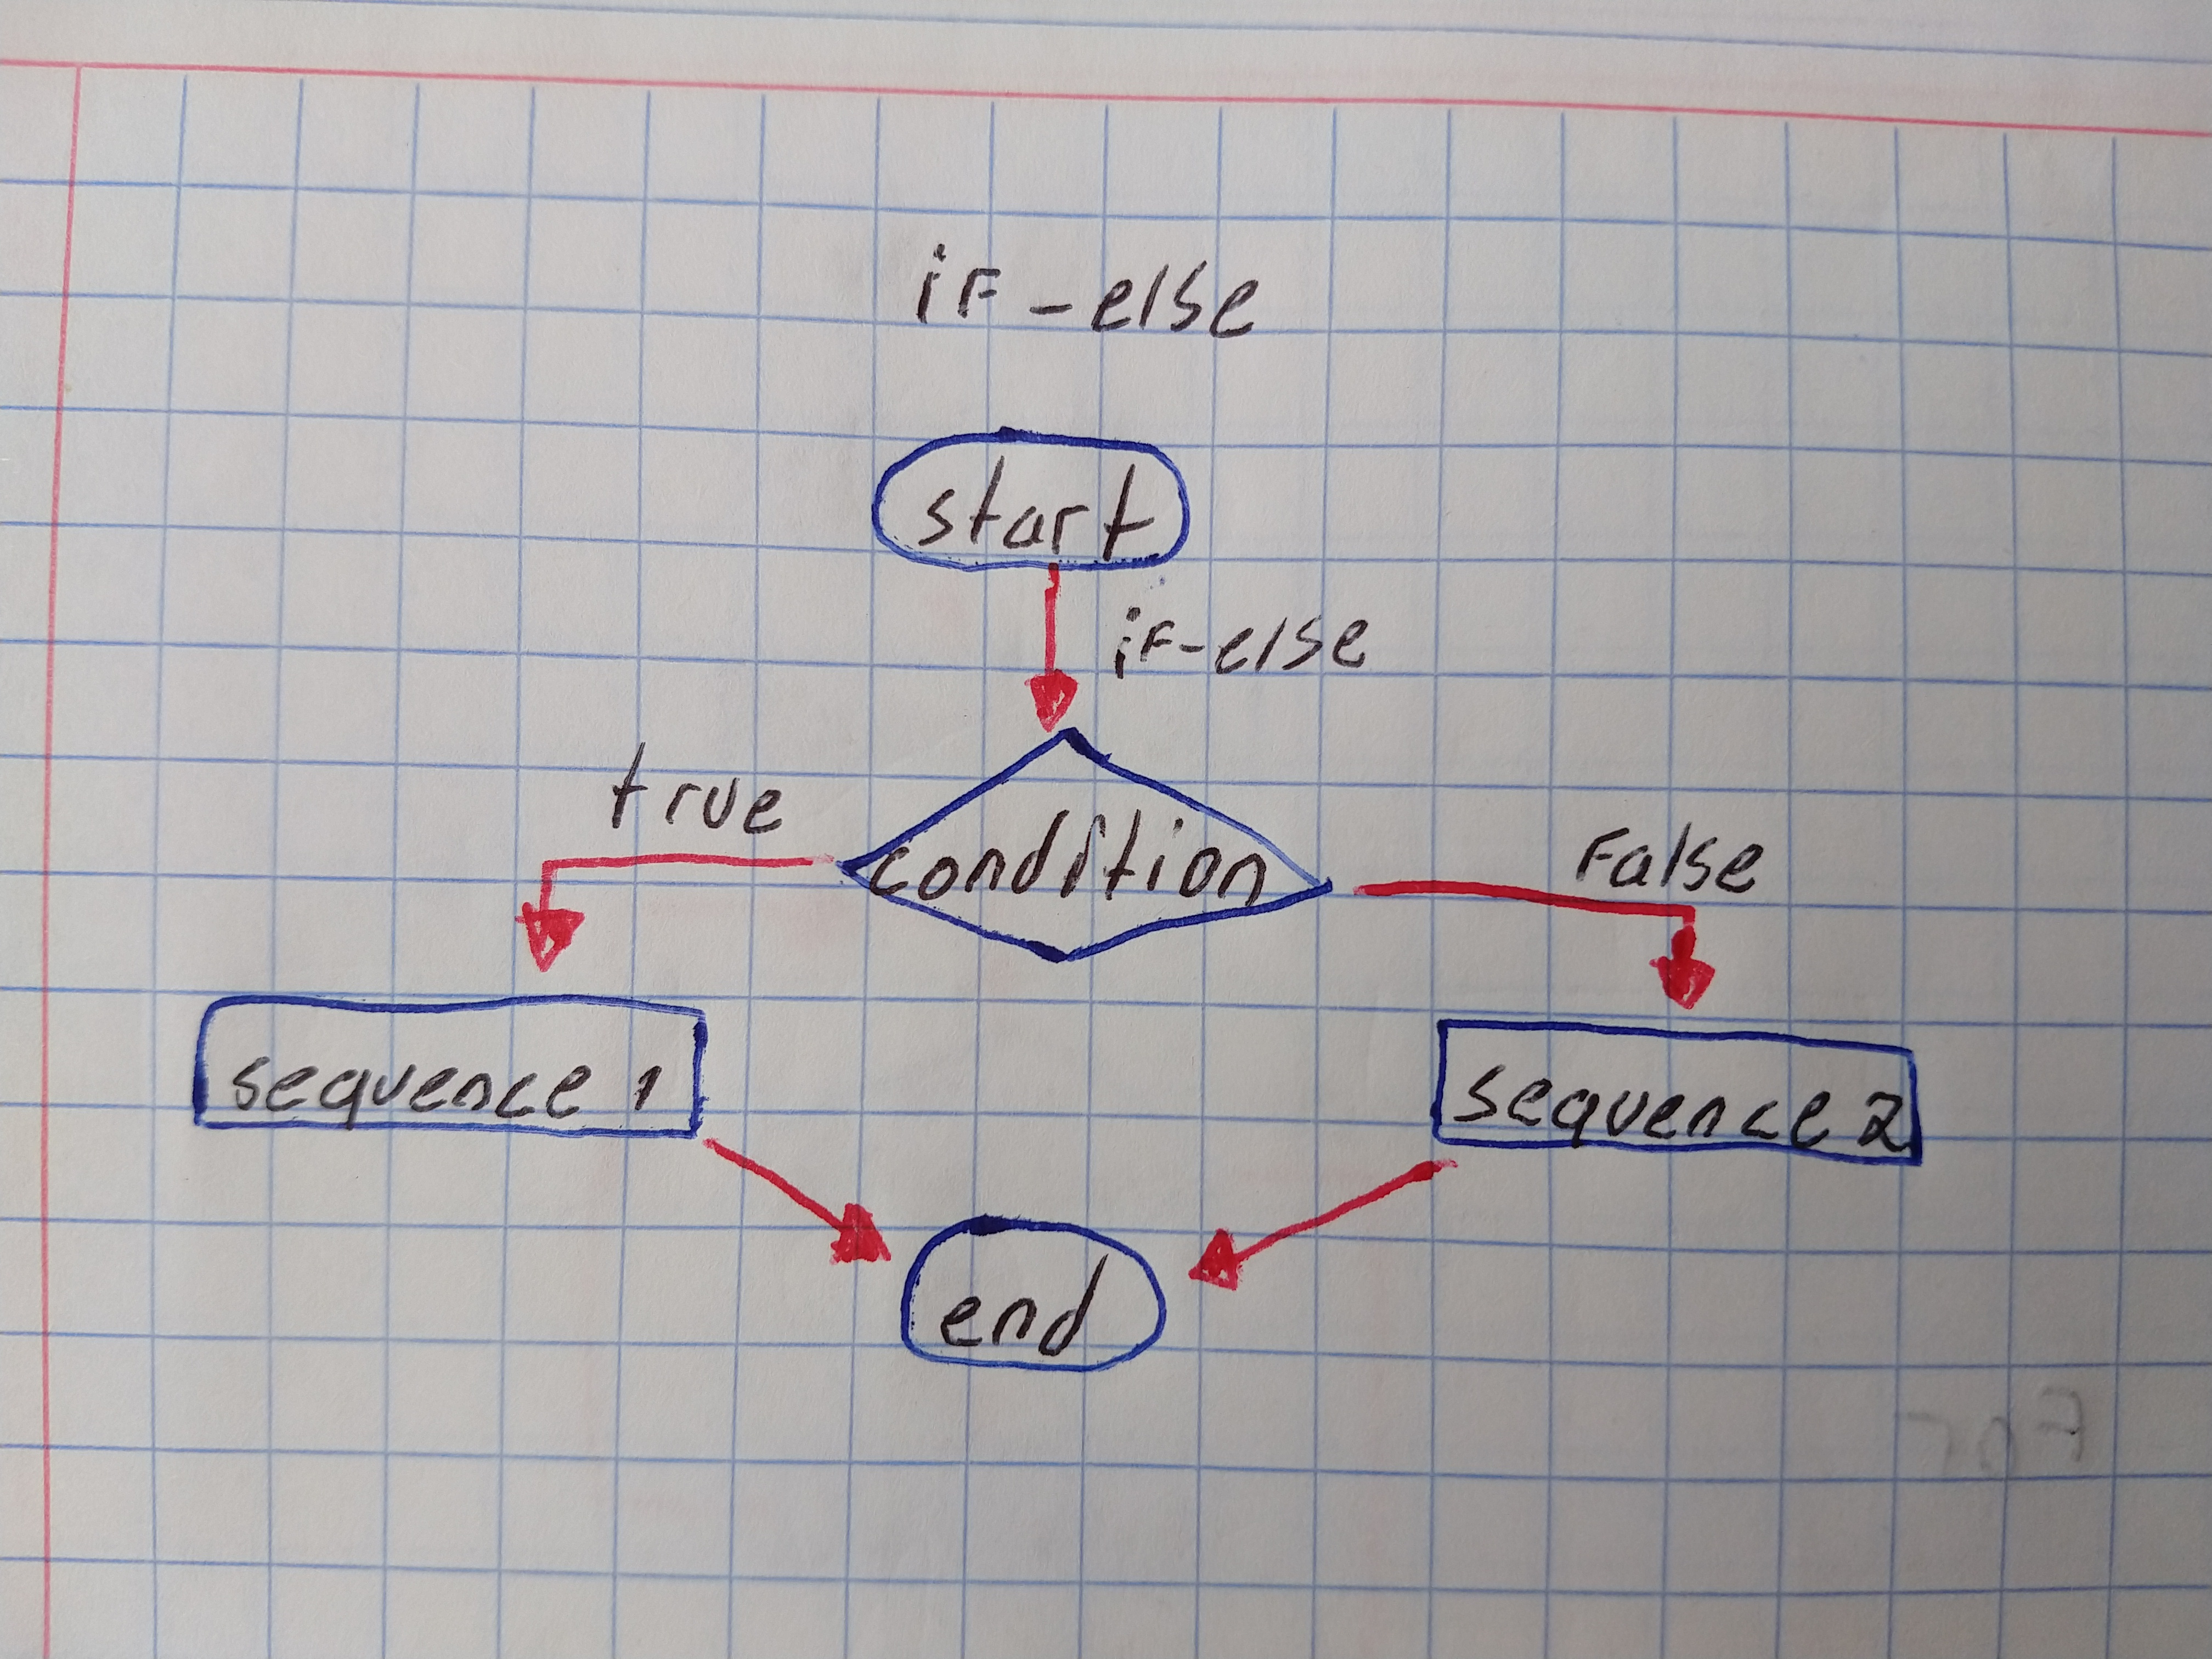 iF - else
start
iF-else
true
condition
False
sequence 1
sequence 2
end
For